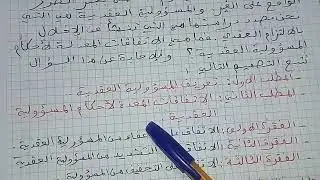 الواقع على الغير و المسؤولية العقدية هي التي
نحن بصدد دراستها هي التي تنشأ عن الإخلال
بالالتزام العقدي فما هي الاتفاقات المعدلة لأحكام
المسؤولية العقدية؟ وللإجابة عن هذا السؤال
نتبع التصميم التالي:
- المطلب الأول: تعريف المسؤولية العقدية
- المطلب الثاني: الاتفاقات المعدلة لأحكام المسؤولية
العقدية
- الفقرة الأولى: الاتفاق على الإعفاء من المسؤولية العقدية
- الفقرة الثانية: الاتفاق التشديد من المسؤولية العقدية
- الفقرة الثالثة: الاتفاق التخفيف من المسؤولية